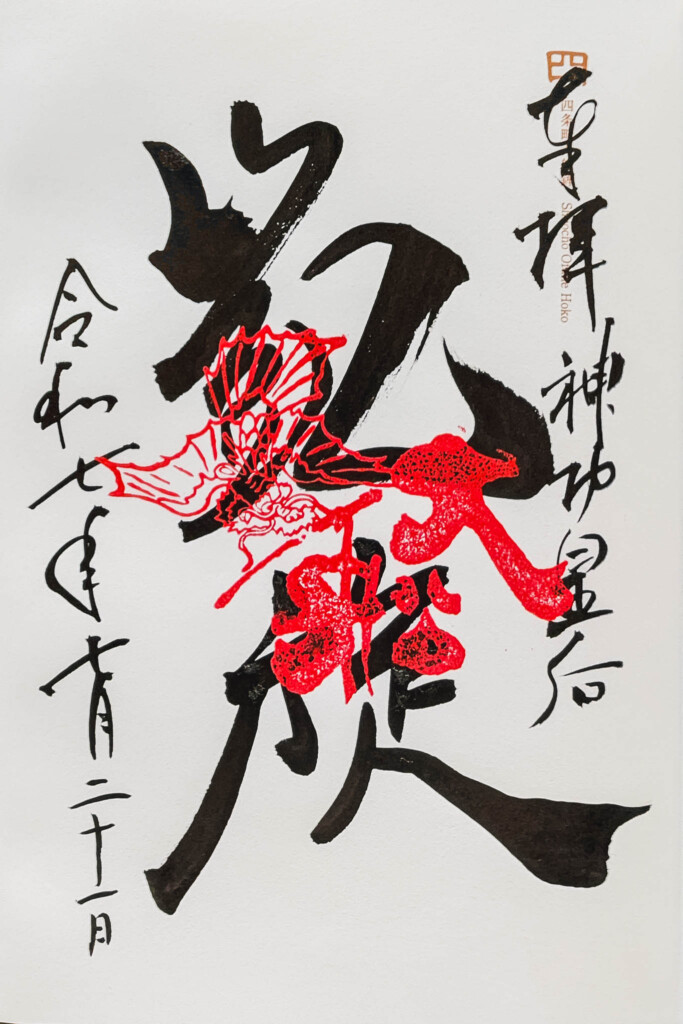 四
四条町 Hoko
奉拝 神功皇后
凱旋
令和七年七月二十一日